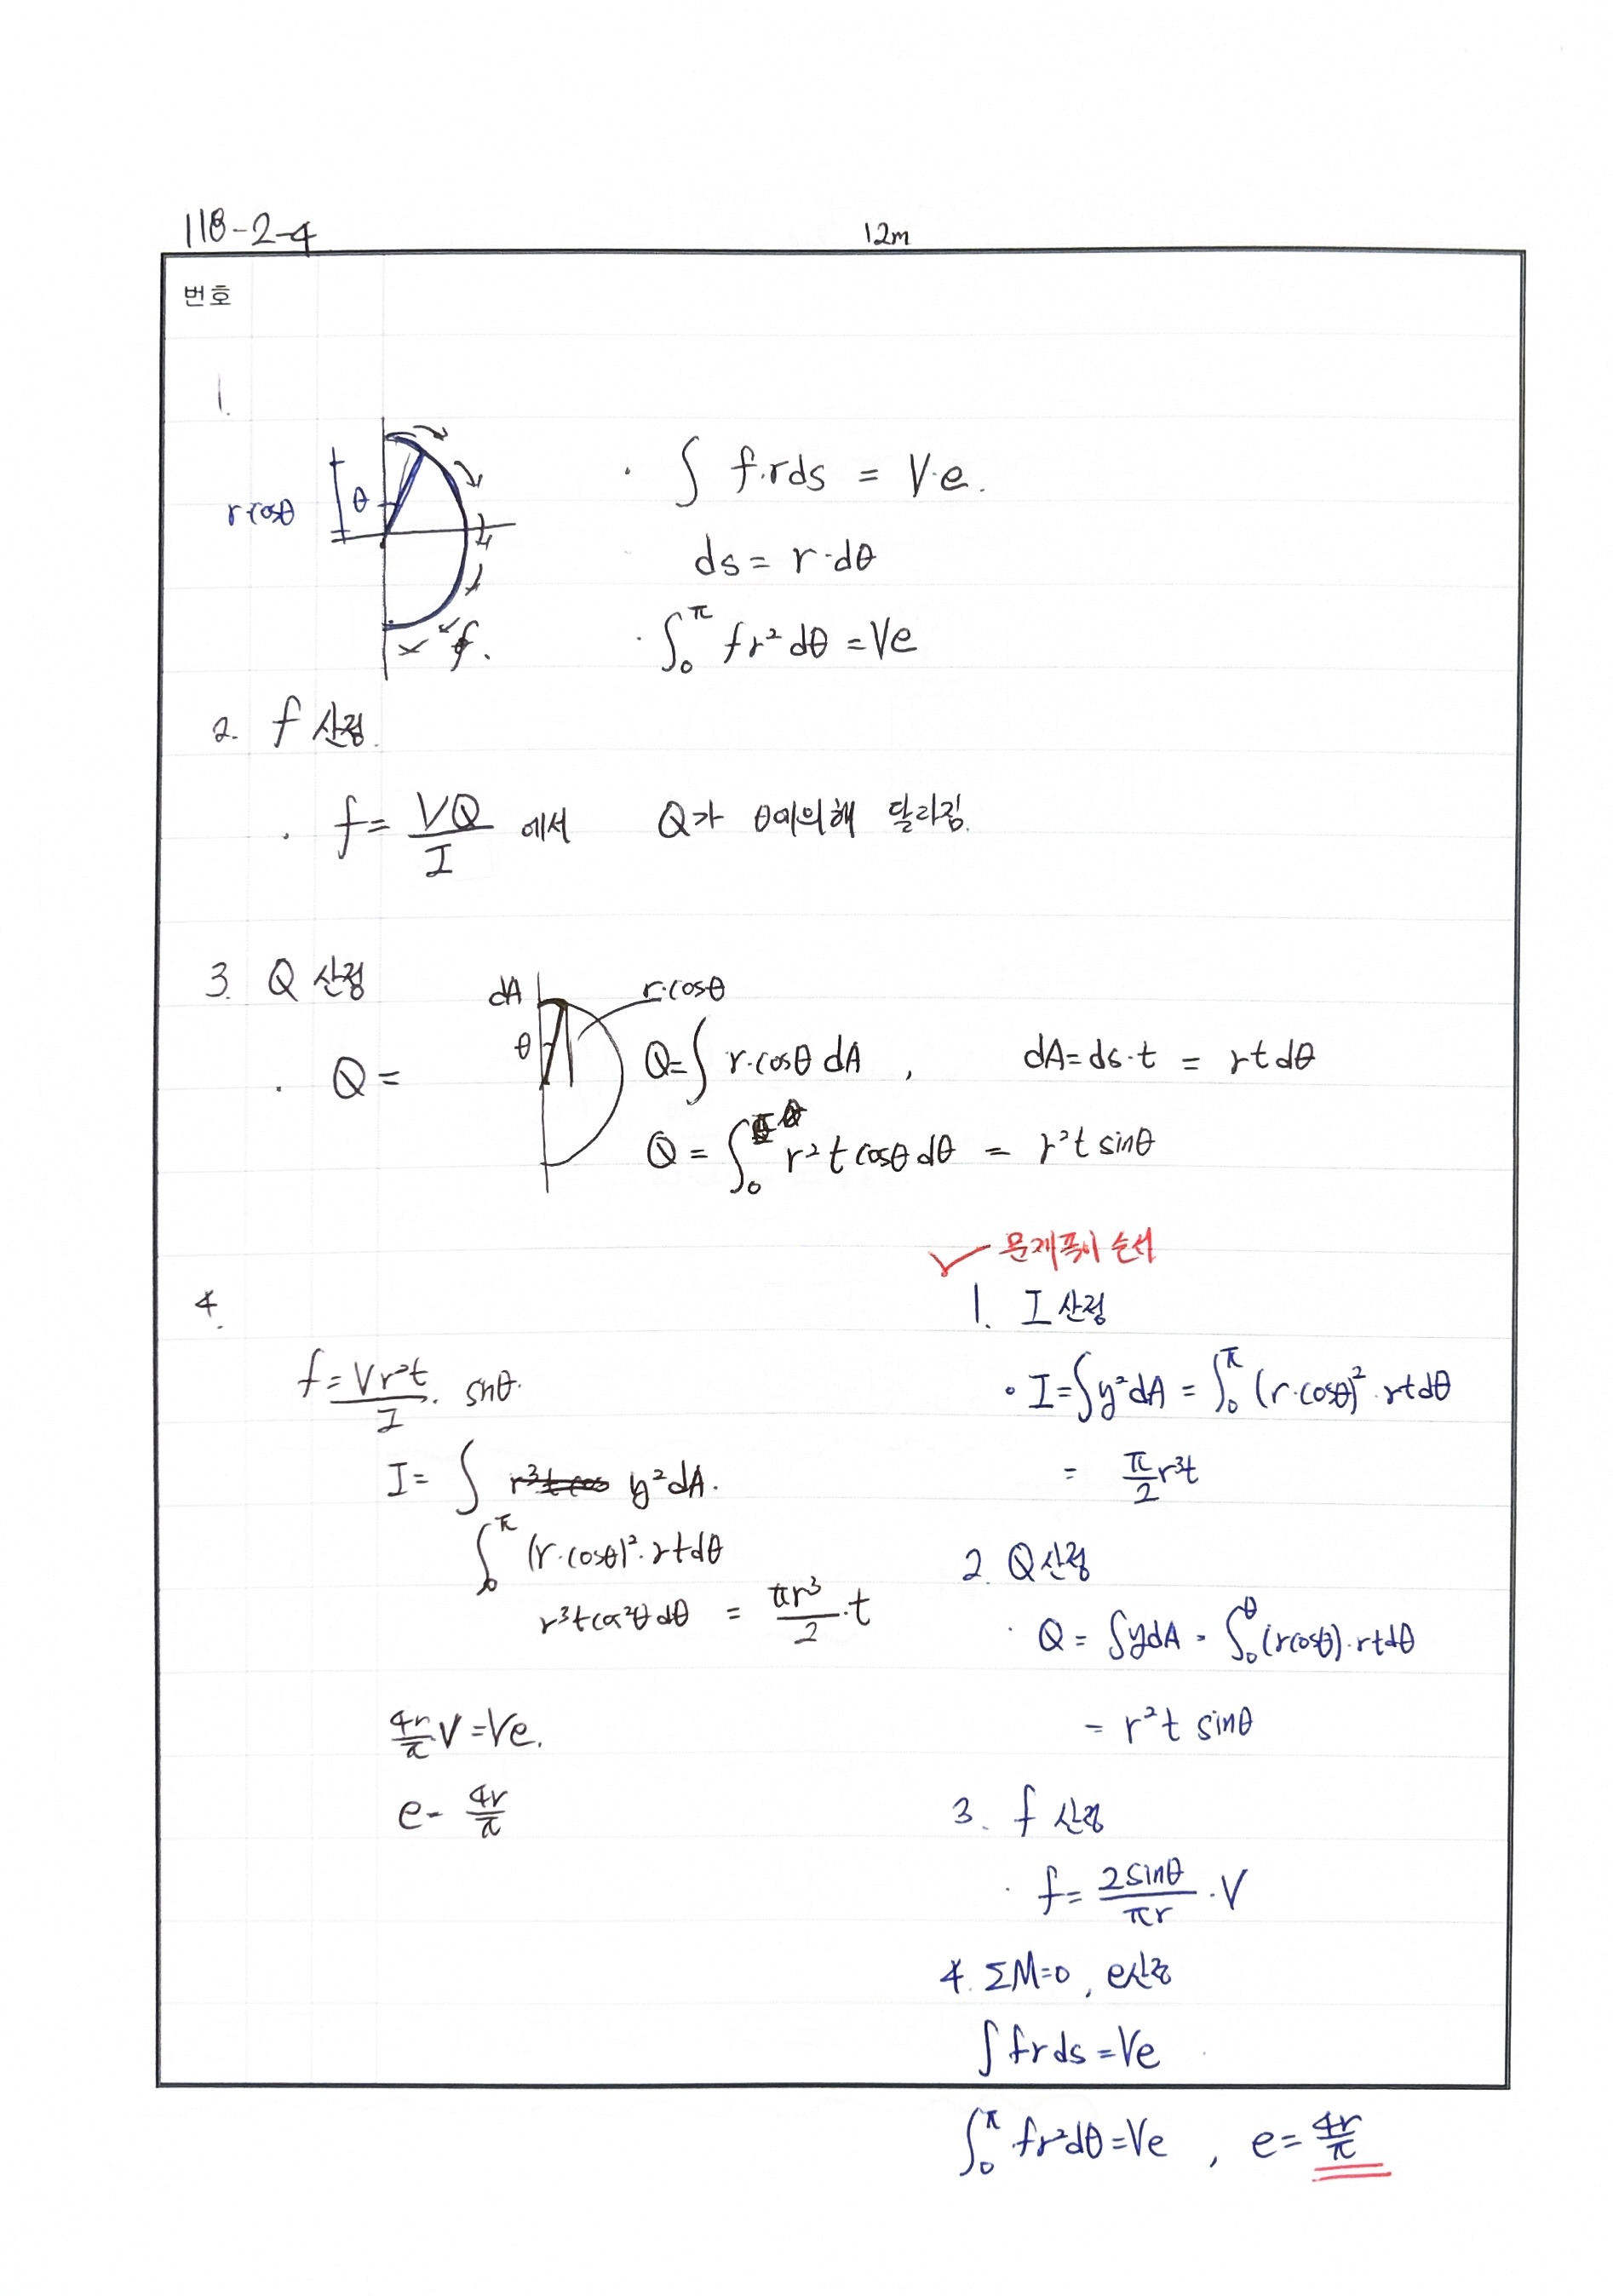 118-2-4
12m
번호
1.
r·cosθ
θ
f.
· ∫ f·rds = V·e.
ds = r·dθ
· ∫₀^π fr² dθ = Ve
2. f 산정.
· f = VQ/I 에서 Q가 θ에의해 달라짐.
3. Q 산정
dA
r·cosθ
θ
· Q =
Q = ∫ r·cosθ dA , dA = ds·t = rtdθ
Q = ∫₀^θ r²t cosθ dθ = r²t sinθ
4.
f = Vr²t/I · sinθ.
I = ∫ y²dA.
∫₀^π (r·cosθ)²·rtdθ
r³t cos²θ dθ = πr³/2 ·t
4r/π V = Ve.
e = 4r/π
✓ 문제풀이 순서
1. I 산정
· I = ∫y²dA = ∫₀^π (r·cosθ)²·rtdθ
= π/2 r³t
2. Q 산정
· Q = ∫ydA = ∫₀^θ (rcosθ)·rtdθ
= r²t sinθ
3. f 산정
· f = 2sinθ/πr ·V
4. ΣM=0, e산정
∫frds = Ve
∫₀^π fr²dθ = Ve , e = 4r/π